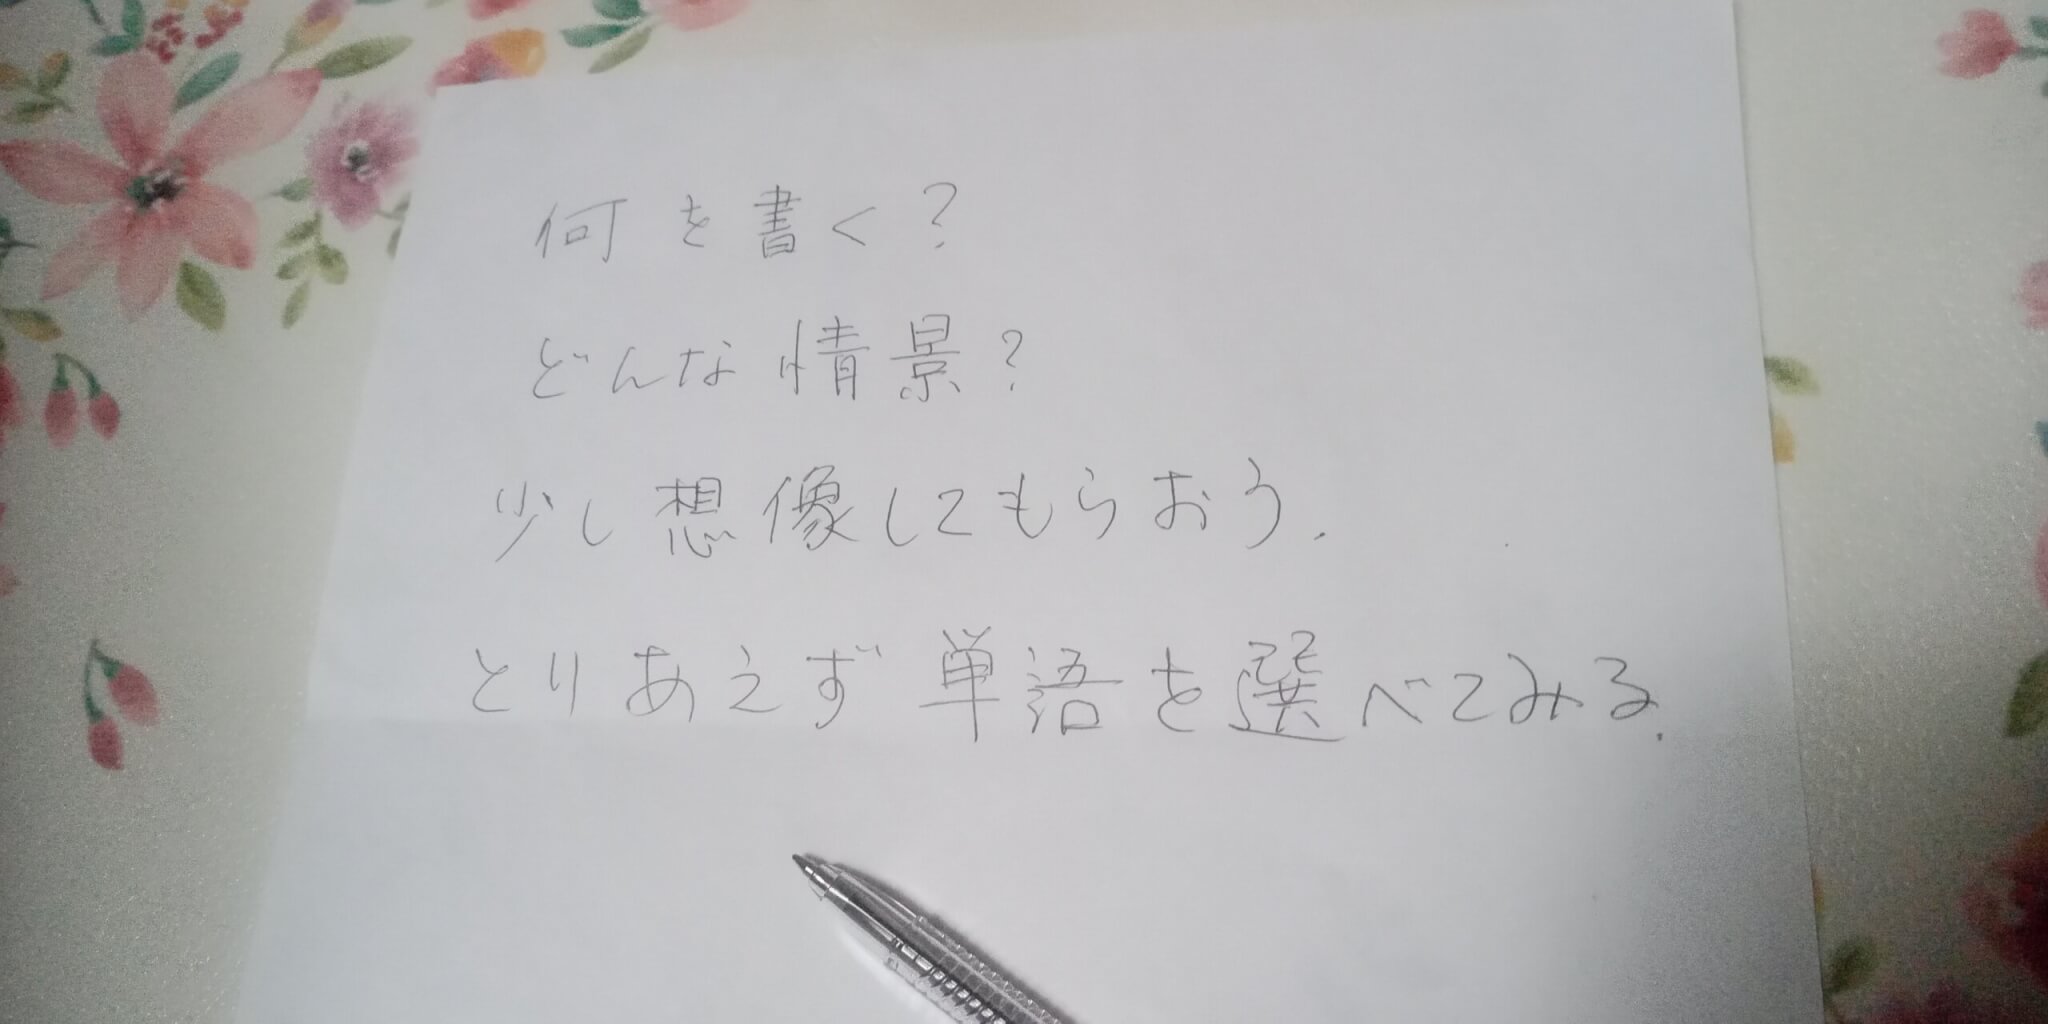 何を書く?
どんな情景?
少し想像してもらおう.
とりあえず単語を選べてみる.